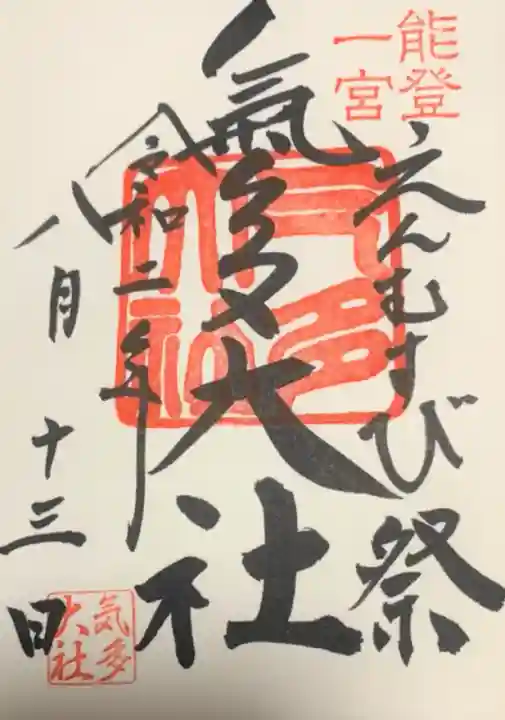 能登
一宮
えんむすび祭
氣多大社
令和二年
八月十三日
气多
大社
気多
大社